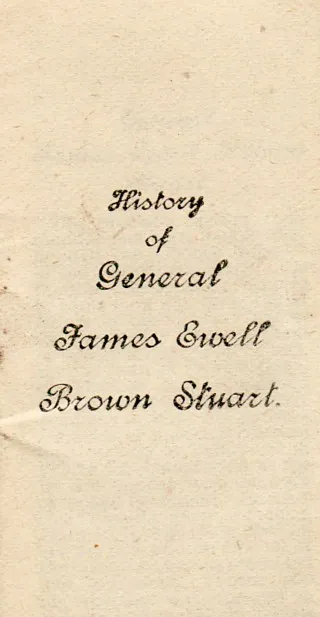 History
of
General
James Ewell
Brown Stuart.